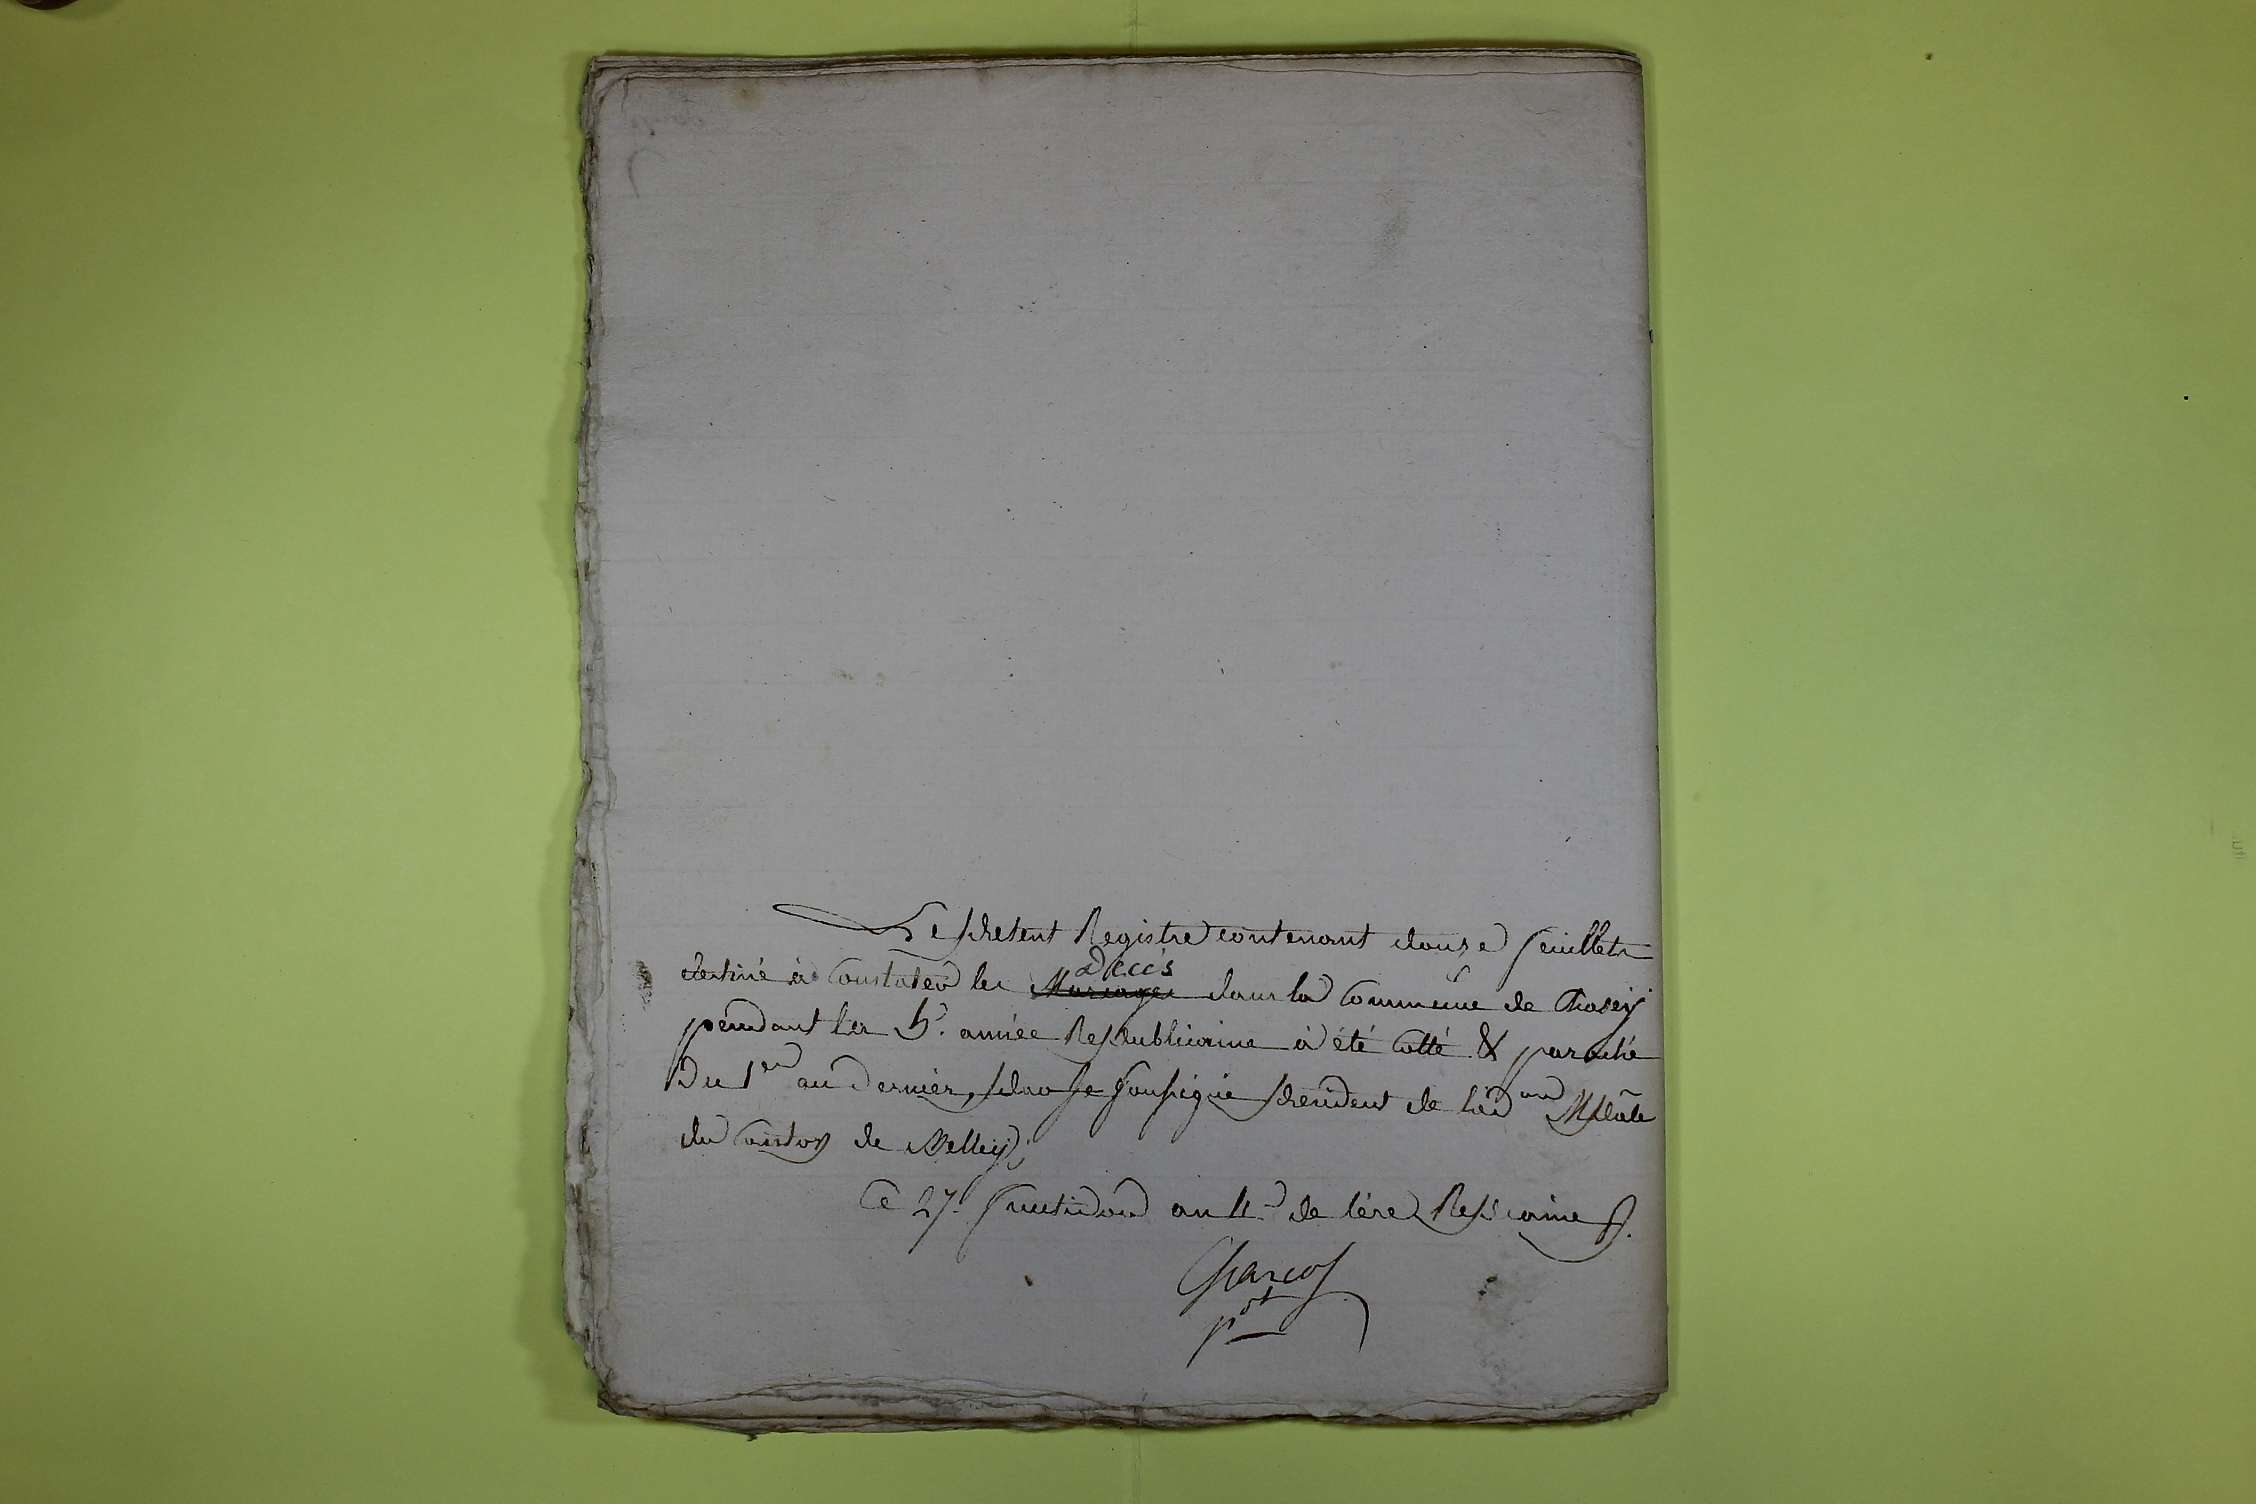 Le present Registre contenant douze feuillets
destiné à Constater les Mariages Décès dans la Commune de Chosey
pendant la 5e. année Republicaine à été cotté & paraphé
Du 1er au Dernier, par Je Soussigné president de l'adon Mpâle
du Canton de Melley;
Ce 27. fructidor an 4e de l'ère Repcaine
pdt